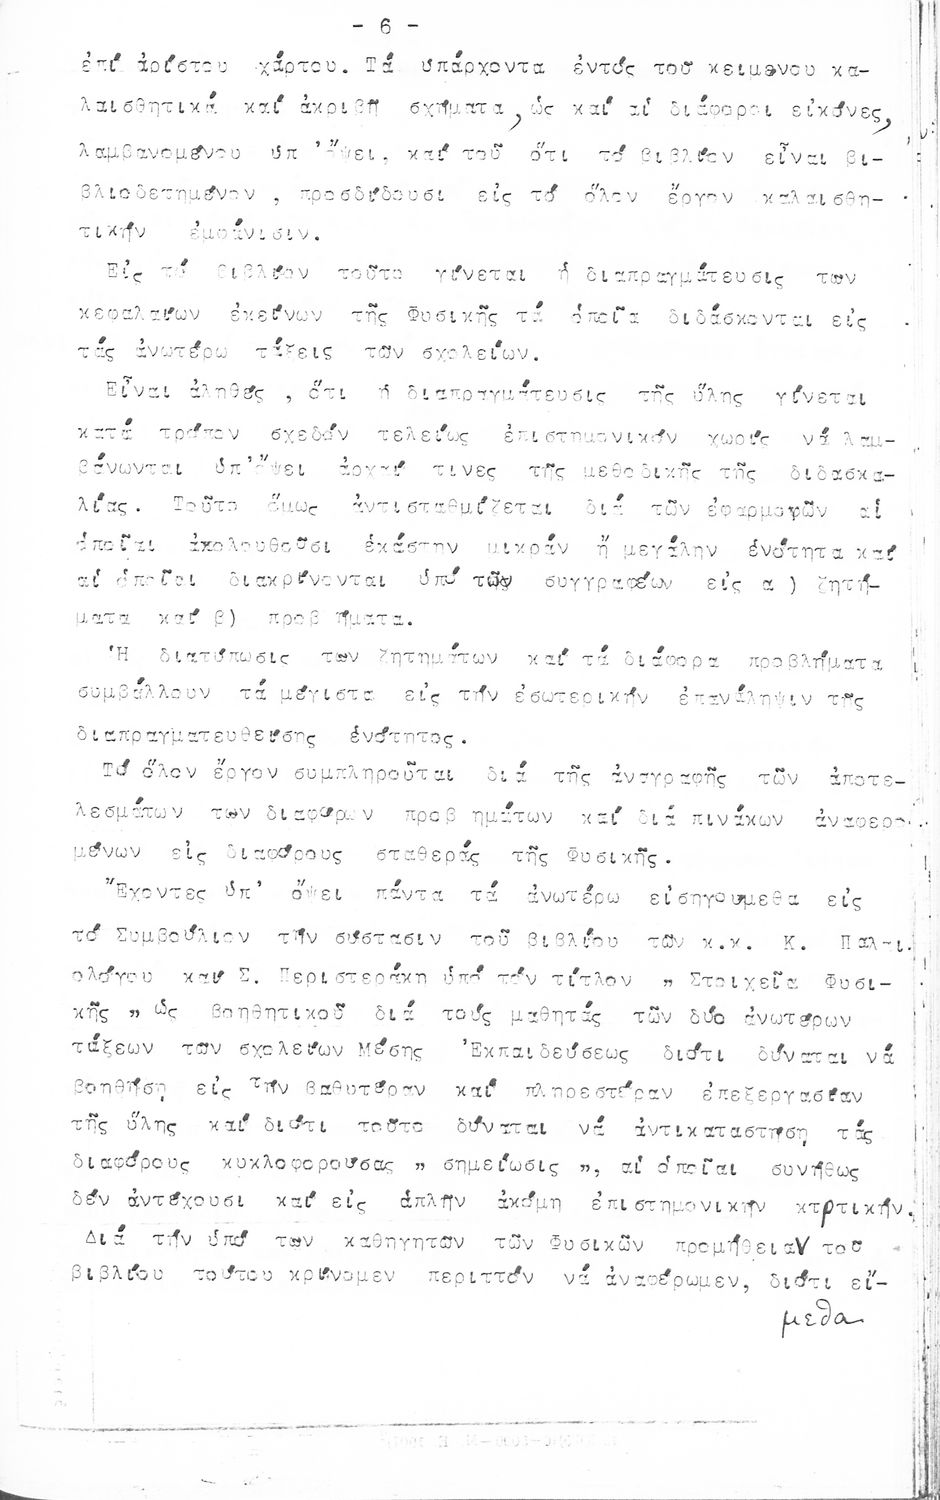 - 6 -
ἐπί ἀρίστου χάρτου. Τά ὑπάρχοντα ἐντός τοῦ κειμένου κα-
λαισθητικά καί ἀκριβῆ σχήματα, ὡς καί αἱ διάφοροι εἰκόνες,
λαμβανομένου ὑπ' ὄψει, καί τοῦ ὅτι τό βιβλίον εἶναι βι-
βλιοδετημένον , προσδίδουσι εἰς τό ὅλον ἔργον καλαισθη-
τικήν ἐμφάνισιν.
Εἰς τό βιβλίον τοῦτο γίνεται ἡ διαπραγμάτευσις των
κεφαλαίων ἐκείνων τῆς Φυσικῆς τά ὁποῖα διδάσκονται εἰς
τάς ἀνωτέρω τάξεις τῶν σχολείων.
Εἶναι ἀληθές , ὅτι ἡ διαπραγμάτευσις τῆς ὕλης γίνεται
κατά τρόπον σχεδόν τελείως ἐπιστημονικόν χωρίς νά λαμ-
βάνωνται ὑπ'ὄψει ἀρχαί τινες τῆς μεθοδικῆς τῆς διδασκα-
λίας. Τοῦτο ὅμως ἀντισταθμίζεται διά τῶν ἐφαρμογῶν αἱ
ὁποῖαι ἀκολουθοῦσι ἑκάστην μικράν ἤ μεγάλην ἑνότητα καί
αἱ ὁποῖαι διακρίνονται ὑπό τῶν συγγραφέων εἰς α ) ζητή-
ματα καί β) προβ ήματα.
Ἡ διατύπωσις των ζητημάτων καί τά διάφορα προβλήματα
συμβάλλουν τά μέγιστα εἰς τήν ἐσωτερικήν ἐπανάληψιν τῆς
διαπραγματευθείσης ἑνότητος.
Τό ὅλον ἔργον συμπληροῦται διά τῆς ἀναγραφῆς τῶν ἀποτε-
λεσμάτων των διαφόρων προβ ημάτων καί διά πινάκων ἀναφερο
μένων εἰς διαφόρους σταθεράς τῆς Φυσικῆς.
Ἔχοντες ὑπ' ὄψει πάντα τά ἀνωτέρω εἰσηγούμεθα εἰς
τό Συμβούλιον τήν σύστασιν τοῦ βιβλίου τῶν κ.κ. Κ. Παλαι
ολόγου καί Σ. Περιστεράκη ὑπό τόν τίτλον " Στοιχεῖα Φυσι-
κῆς " ὡς βοηθητικοῦ διά τούς μαθητάς τῶν δύο ἀνωτέρων
τάξεων τῶν σχολείων Μέσης Ἐκπαιδεύσεως διότι δύναται νά
βοηθήση εἰς τήν βαθυτέραν καί πληρεστέραν ἐπεξεργασίαν
τῆς ὕλης καί διότι τοῦτο δύναται νά ἀντικαταστήση τάς
διαφόρους κυκλοφορούσας " σημείωσις ", αἱ ὁποῖαι συνήθως
δέν ἀντέχουσι καί εἰς ἁπλῆν ἀκόμη ἐπιστημονικήν κτρτικήν.
Διά τήν ὑπό τῶν καθηγητῶν τῶν Φυσικῶν προμήθειαν τοῦ
βιβλίου τούτου κρίνομεν περιττόν νά ἀναφέρωμεν, διότι εἴ-
μεθα